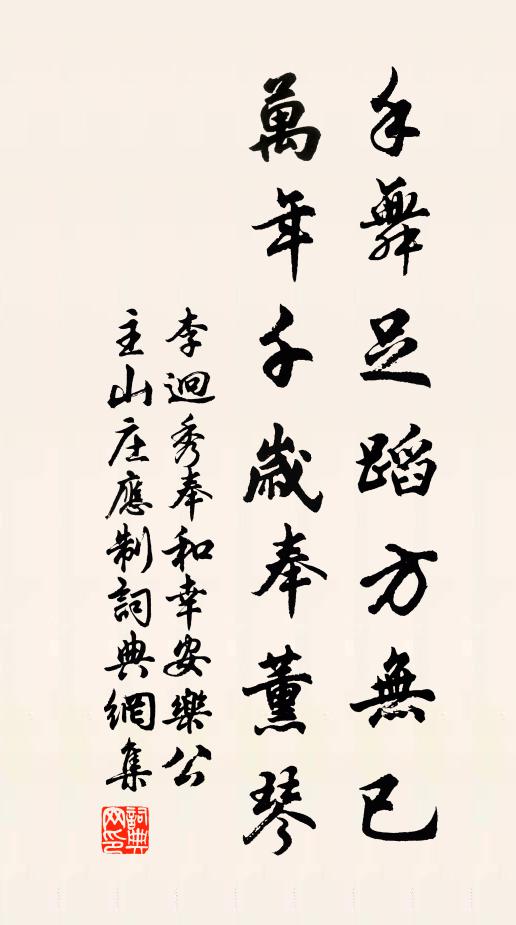 手舞足蹈方無已
萬年千歲奉薰琴
李迥秀奉和幸安樂公
主山庄應制詞典網集
詞典
网印